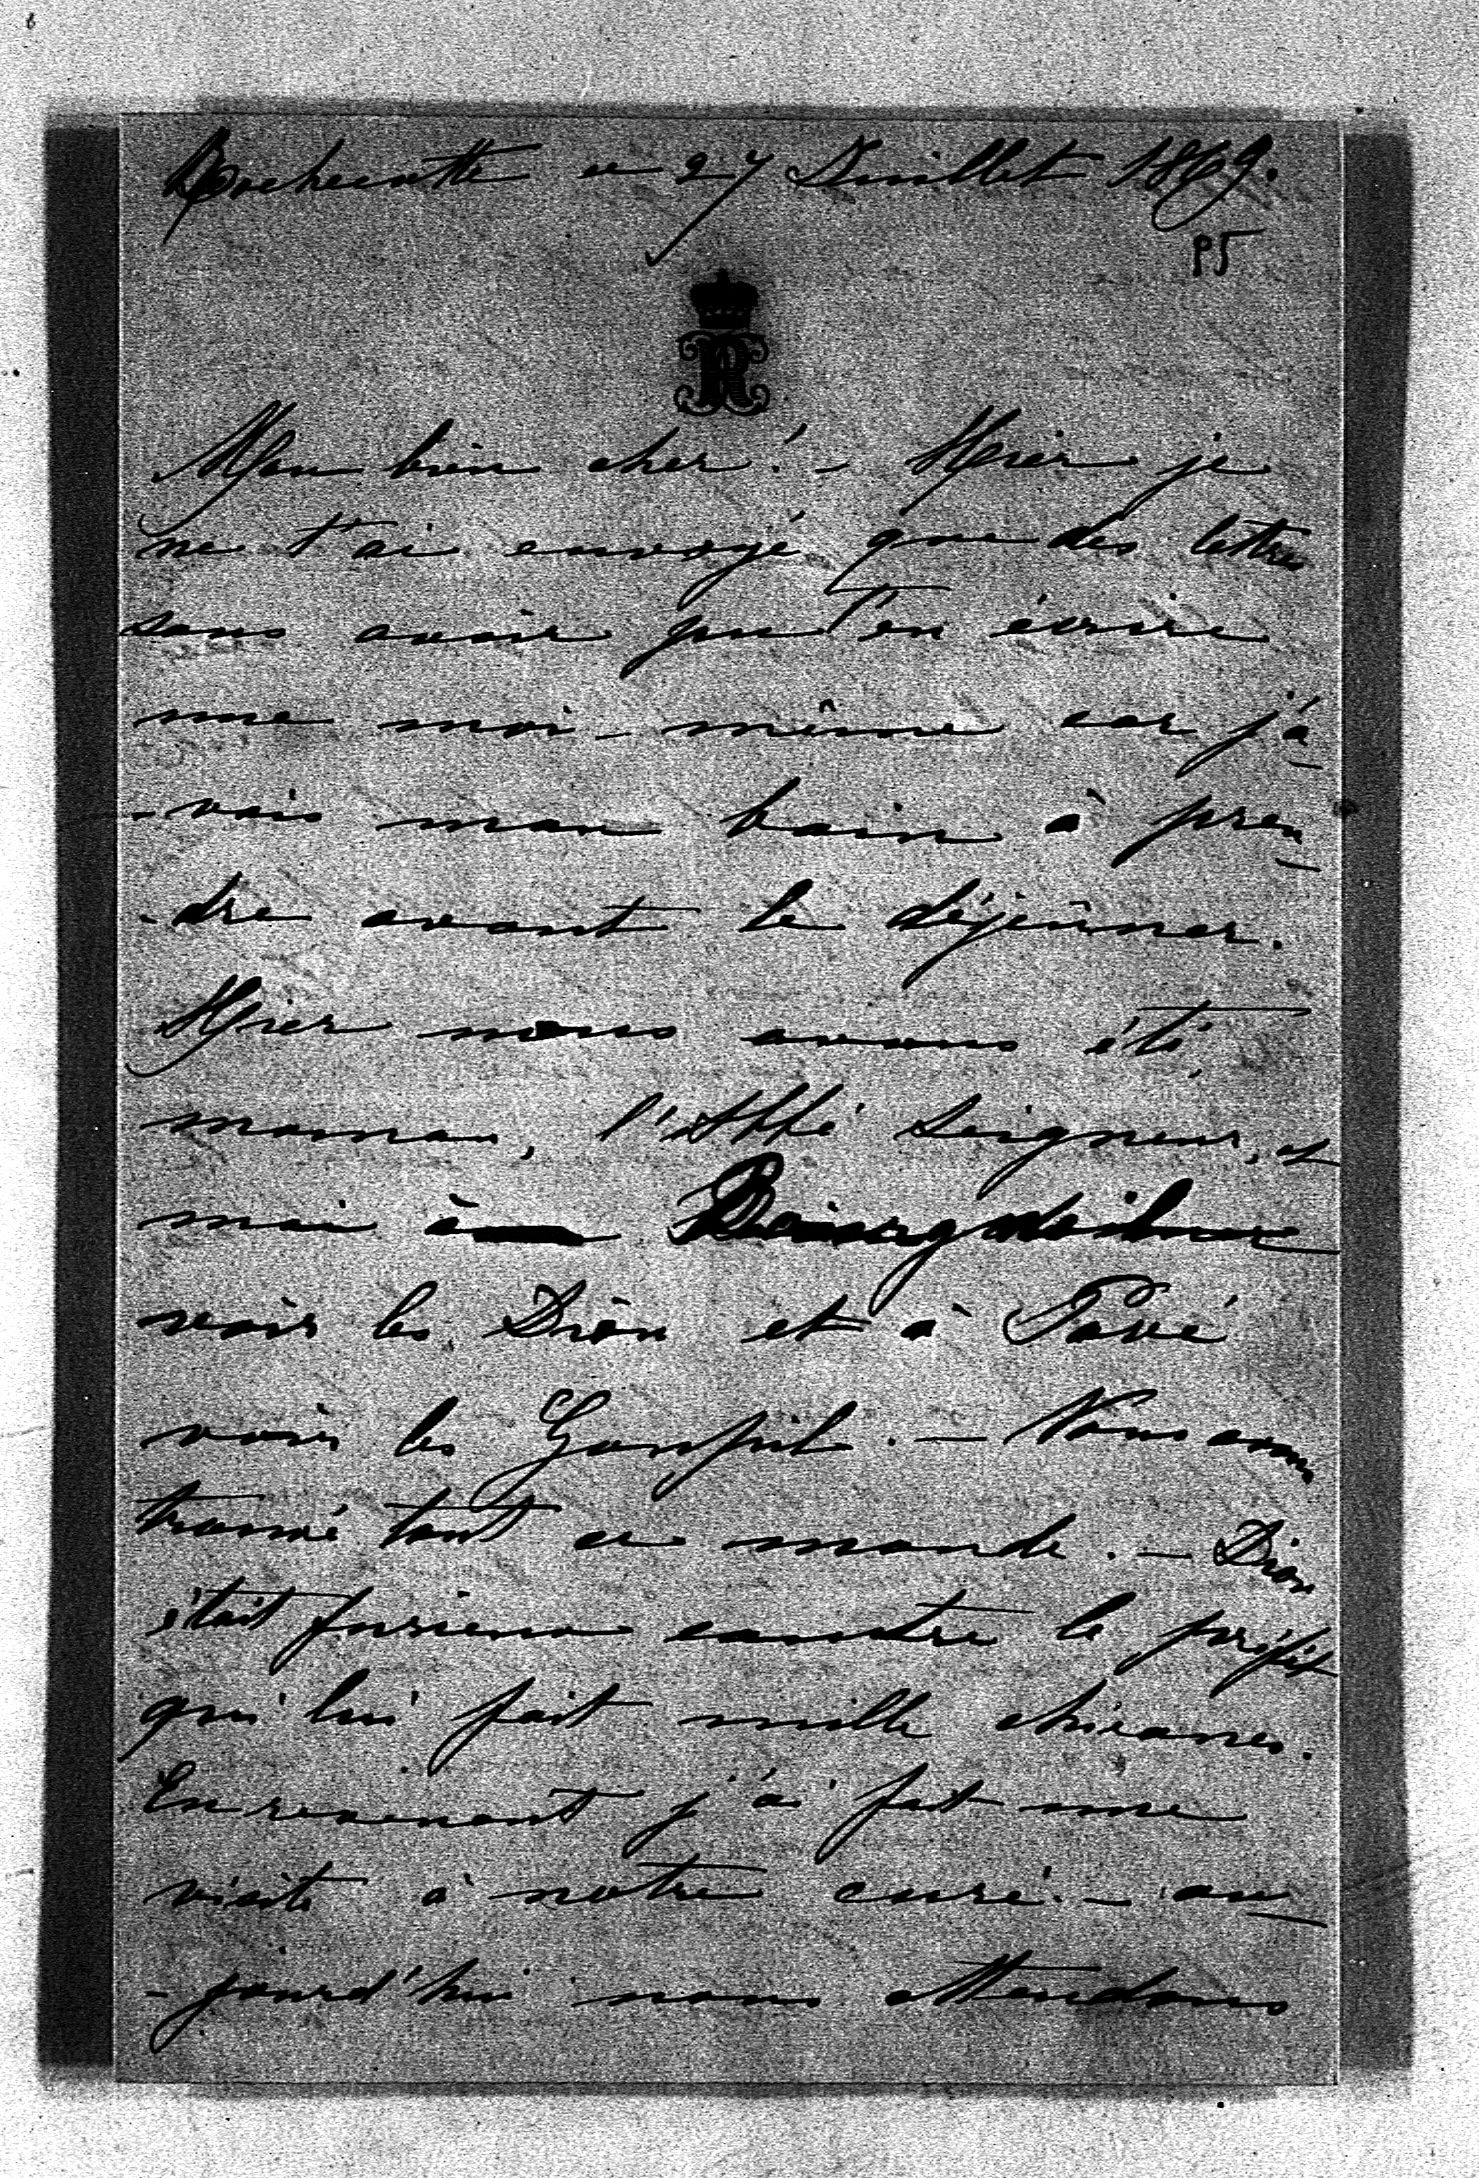 Rochecotte ce 27 Juillet 1869.
95
R
Mon bien cher! - Hier je
ne t'ai envoyé que des lettres
sans avoir pu t'en écrire
une moi-même car j'a
-vais mon bain à pren
-dre avant le déjeûner.
Hier nous avons été
maman, l'Abbé Seigneur, et
moi à
voir les Dion et à Pavé
voir les Goupil. - Nous avons
trouvé tout ce monde. - Dion
était furieux contre le préfet
qui lui fait mille chicanes.
En revenant j'ai fait une
visite à notre curé. - au
-jourd'hui nous attendons